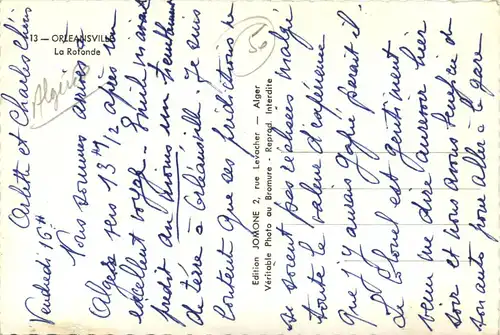 13 — ORLEANSVILLE
La Rotonde
Algérie
56
Vendredi 16 H
Orlette et Charles chéris
Nous sommes arrivés à
Alger vers 13 H 1/2 après un
excellent voyage. Émile m'avait
prédit au moins un tremblement
de terre à Orléansville. Je suis
contente que ses prédictions ne
se soient pas réalisées malgré
toute la valeur d'expérience
que j'y aurais gagné paraît-il.
Le Colonel est gentiment
venu me dire aurevoir hier
soir et nous avons
son auto pour aller à la gare
Edition JOMONE 2, rue Levacher — Alger
Véritable Photo au Bromure - Reprod. Interdite